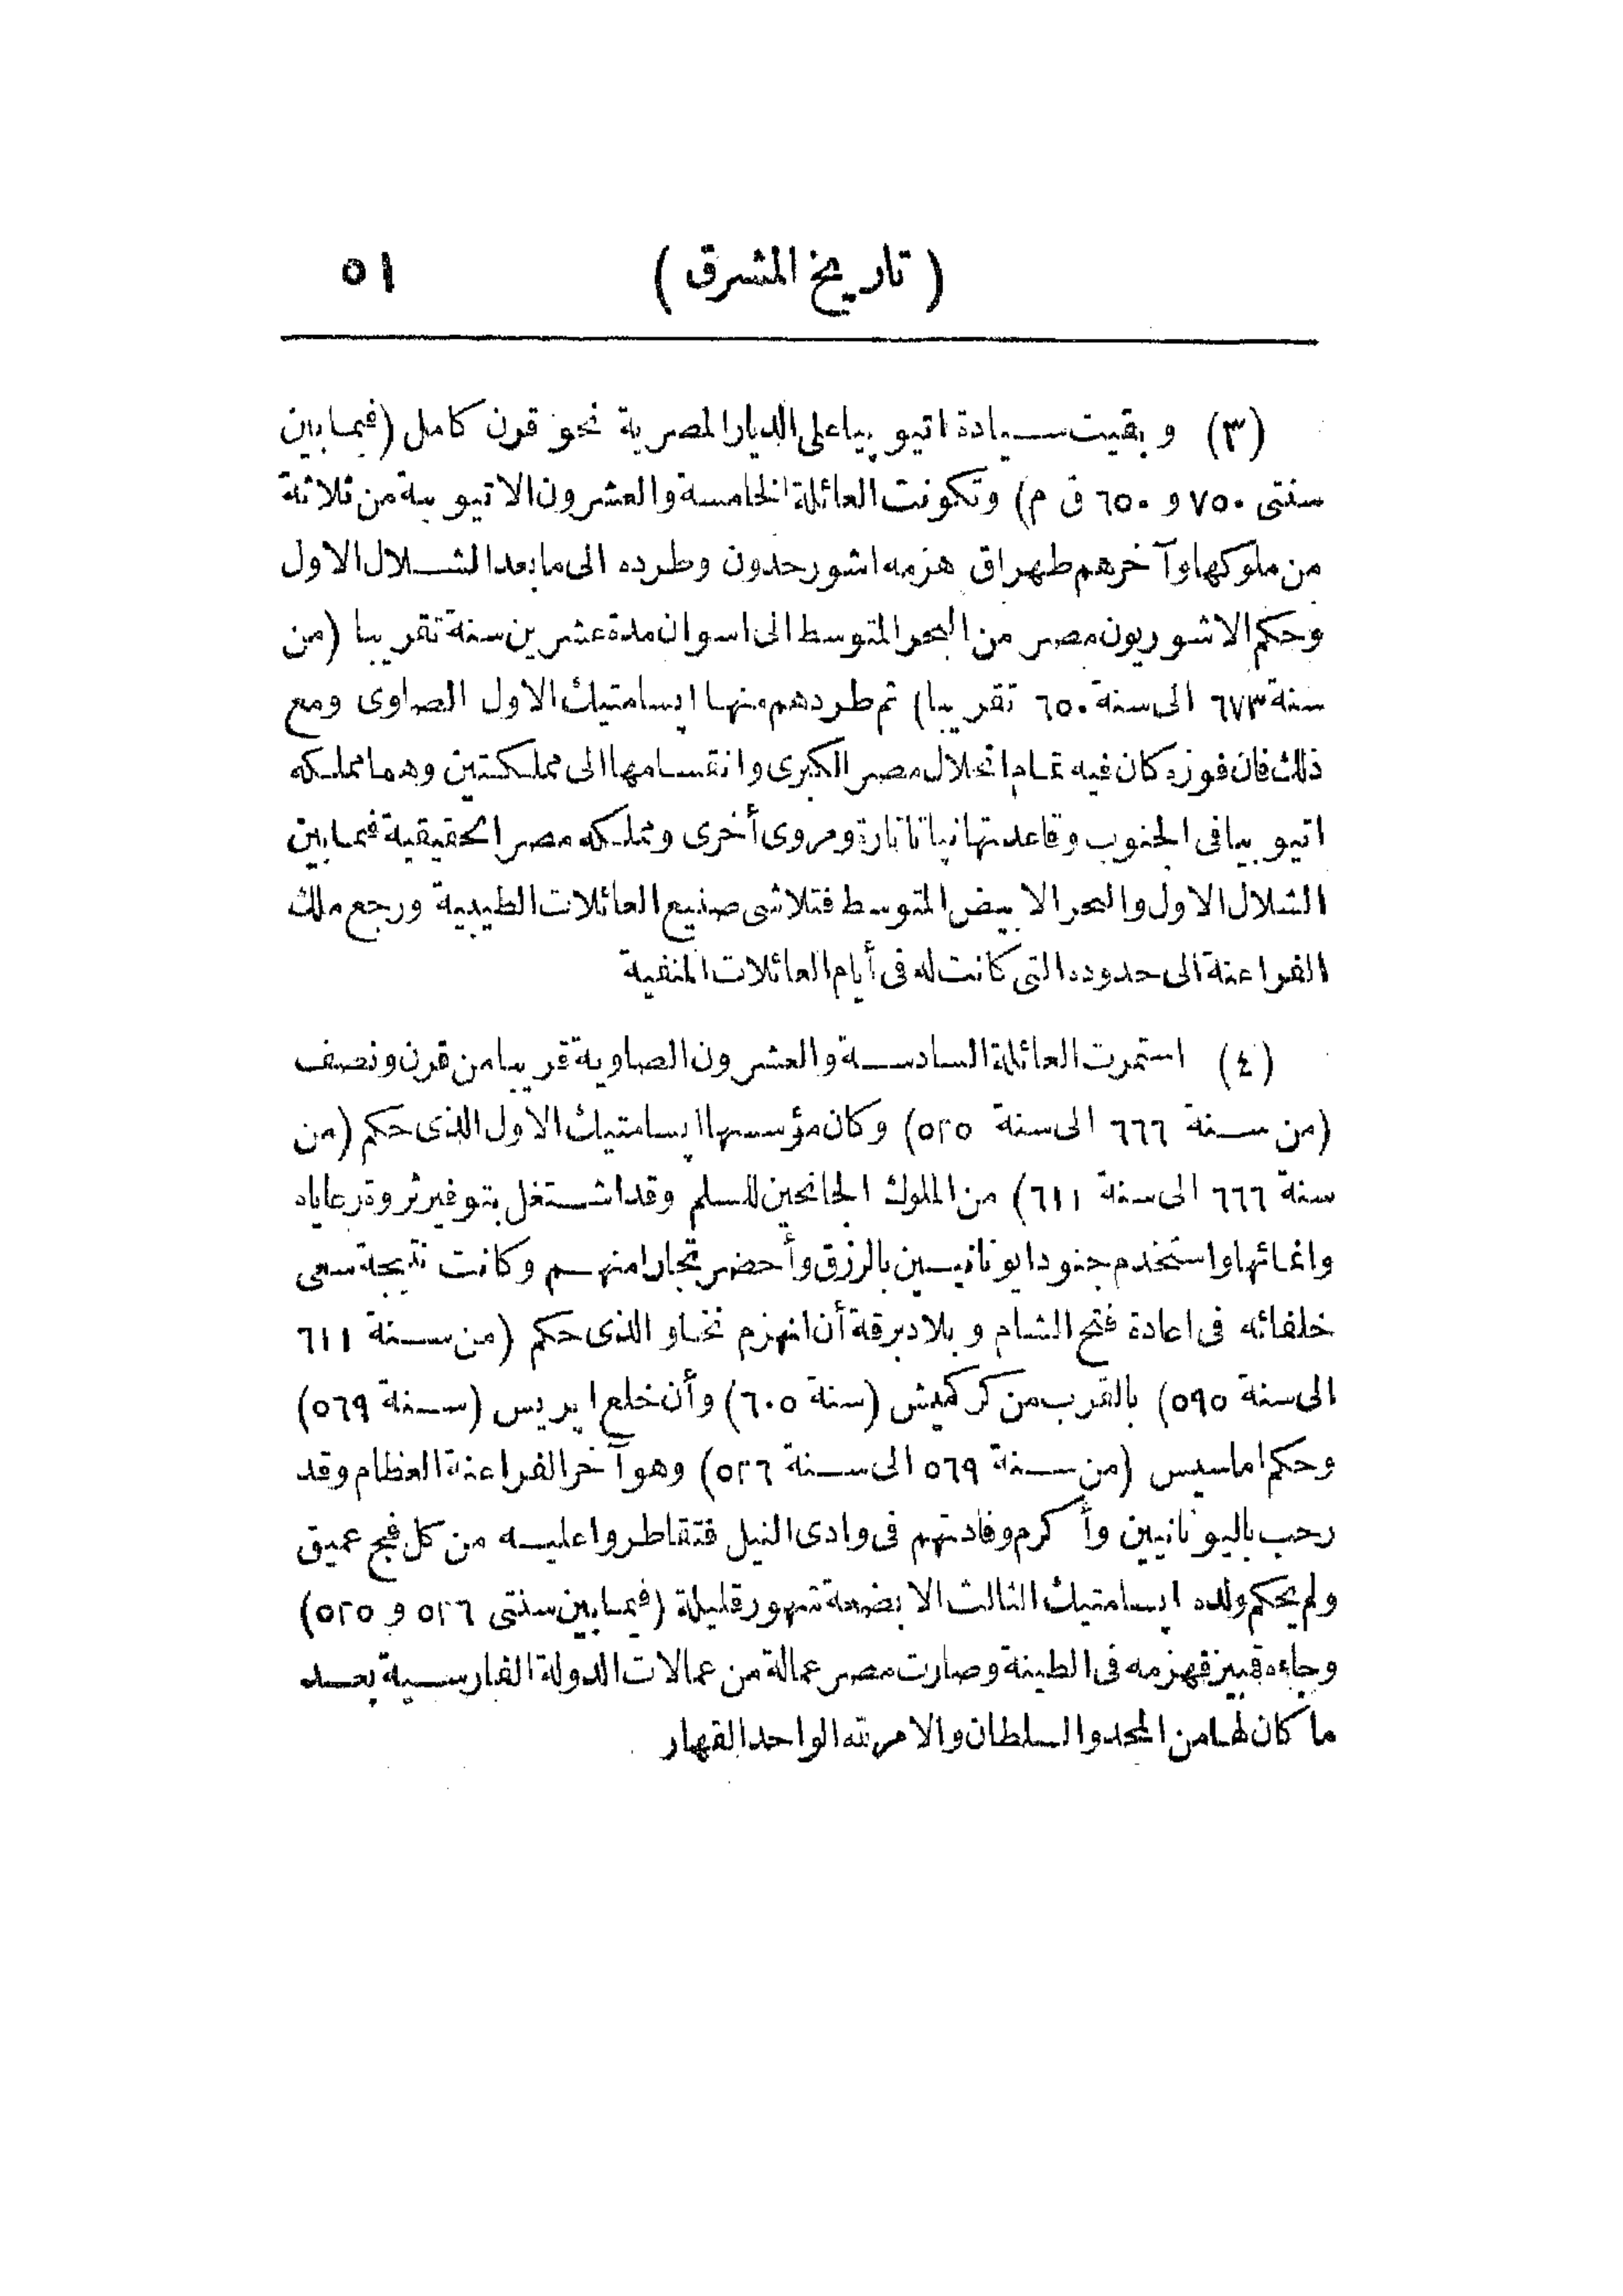 ( تاريخ المشرق ) ٥١
(٣) وبقيت سيادة اتيوبيا على الديار المصرية نحو قرن كامل (فيما بين
سنتى ٧٥٠ و ٦٥٠ ق م) وتكونت العائلة الخامسة والعشرون الاتيوبية من ثلاثة
من ملوكها وآخرهم طهراق هزمه اشور حدون وطرده الى ما بعد الشلال الاول
وحكم الاشوريون مصر من البحر المتوسط الى اسوان مدة عشرين سنة تقريبا (من
سنة ٦٧٣ الى سنة ٦٥٠ تقريبا) ثم طردهم منها ابسامتيك الاول الصاوى ومع
ذلك فان فوزه كان فيه تمام انحلال مصر الكبرى وانقسامها الى مملكتين وهما مملكه
اتيوبيا فى الجنوب وقاعدتها نباتا تارة ومروى أخرى ومملكه مصر الحقيقية فيما بين
الشلال الاول والبحر الابيض المتوسط فتلاشى صنيع العائلات الطيبية ورجع ملك
الفراعنة الى حدوده التى كانت له فى أيام العائلات المنفية
(٤) استمرت العائلة السادسة والعشرون الصاوية قريبا من قرن ونصف
(من سنة ٦٦٦ الى سنة ٥٢٥) وكان مؤسسها ابسامتيك الاول الذى حكم (من
سنة ٦٦٦ الى سنة ٦١١) من الملوك الجانحين للسلم وقد اشتغل بتوفير ثروة رعاياه
وانمائها واستخدم جنودا يونانيين بالرزق وأحضر تجارا منهم وكانت نتيجة سعى
خلفائه فى اعادة فتح الشام وبلاد برقة أن انهزم نخاو الذى حكم (من سنة ٦١١
الى سنة ٥٩٥) بالقرب من كركميش (سنة ٦٠٥) وأن خلع ابريس (سنة ٥٦٩)
وحكم اماسيس (من سنة ٥٦٩ الى سنة ٥٢٦) وهو آخر الفراعنة العظام وقد
رحب باليونانيين وأكرم وفادتهم فى وادى النيل فتقاطروا عليه من كل فج عميق
ولم يحكم ولده ابسامتيك الثالث الا بضعة شهور قليلة (فيما بين سنتى ٥٢٦ و ٥٢٥)
وجاءه قبيز فهزمه فى الطينة وصارت مصر عمالة من عمالات الدولة الفارسية بعد
ما كان لها من المجد والسلطان والامر لله الواحد القهار